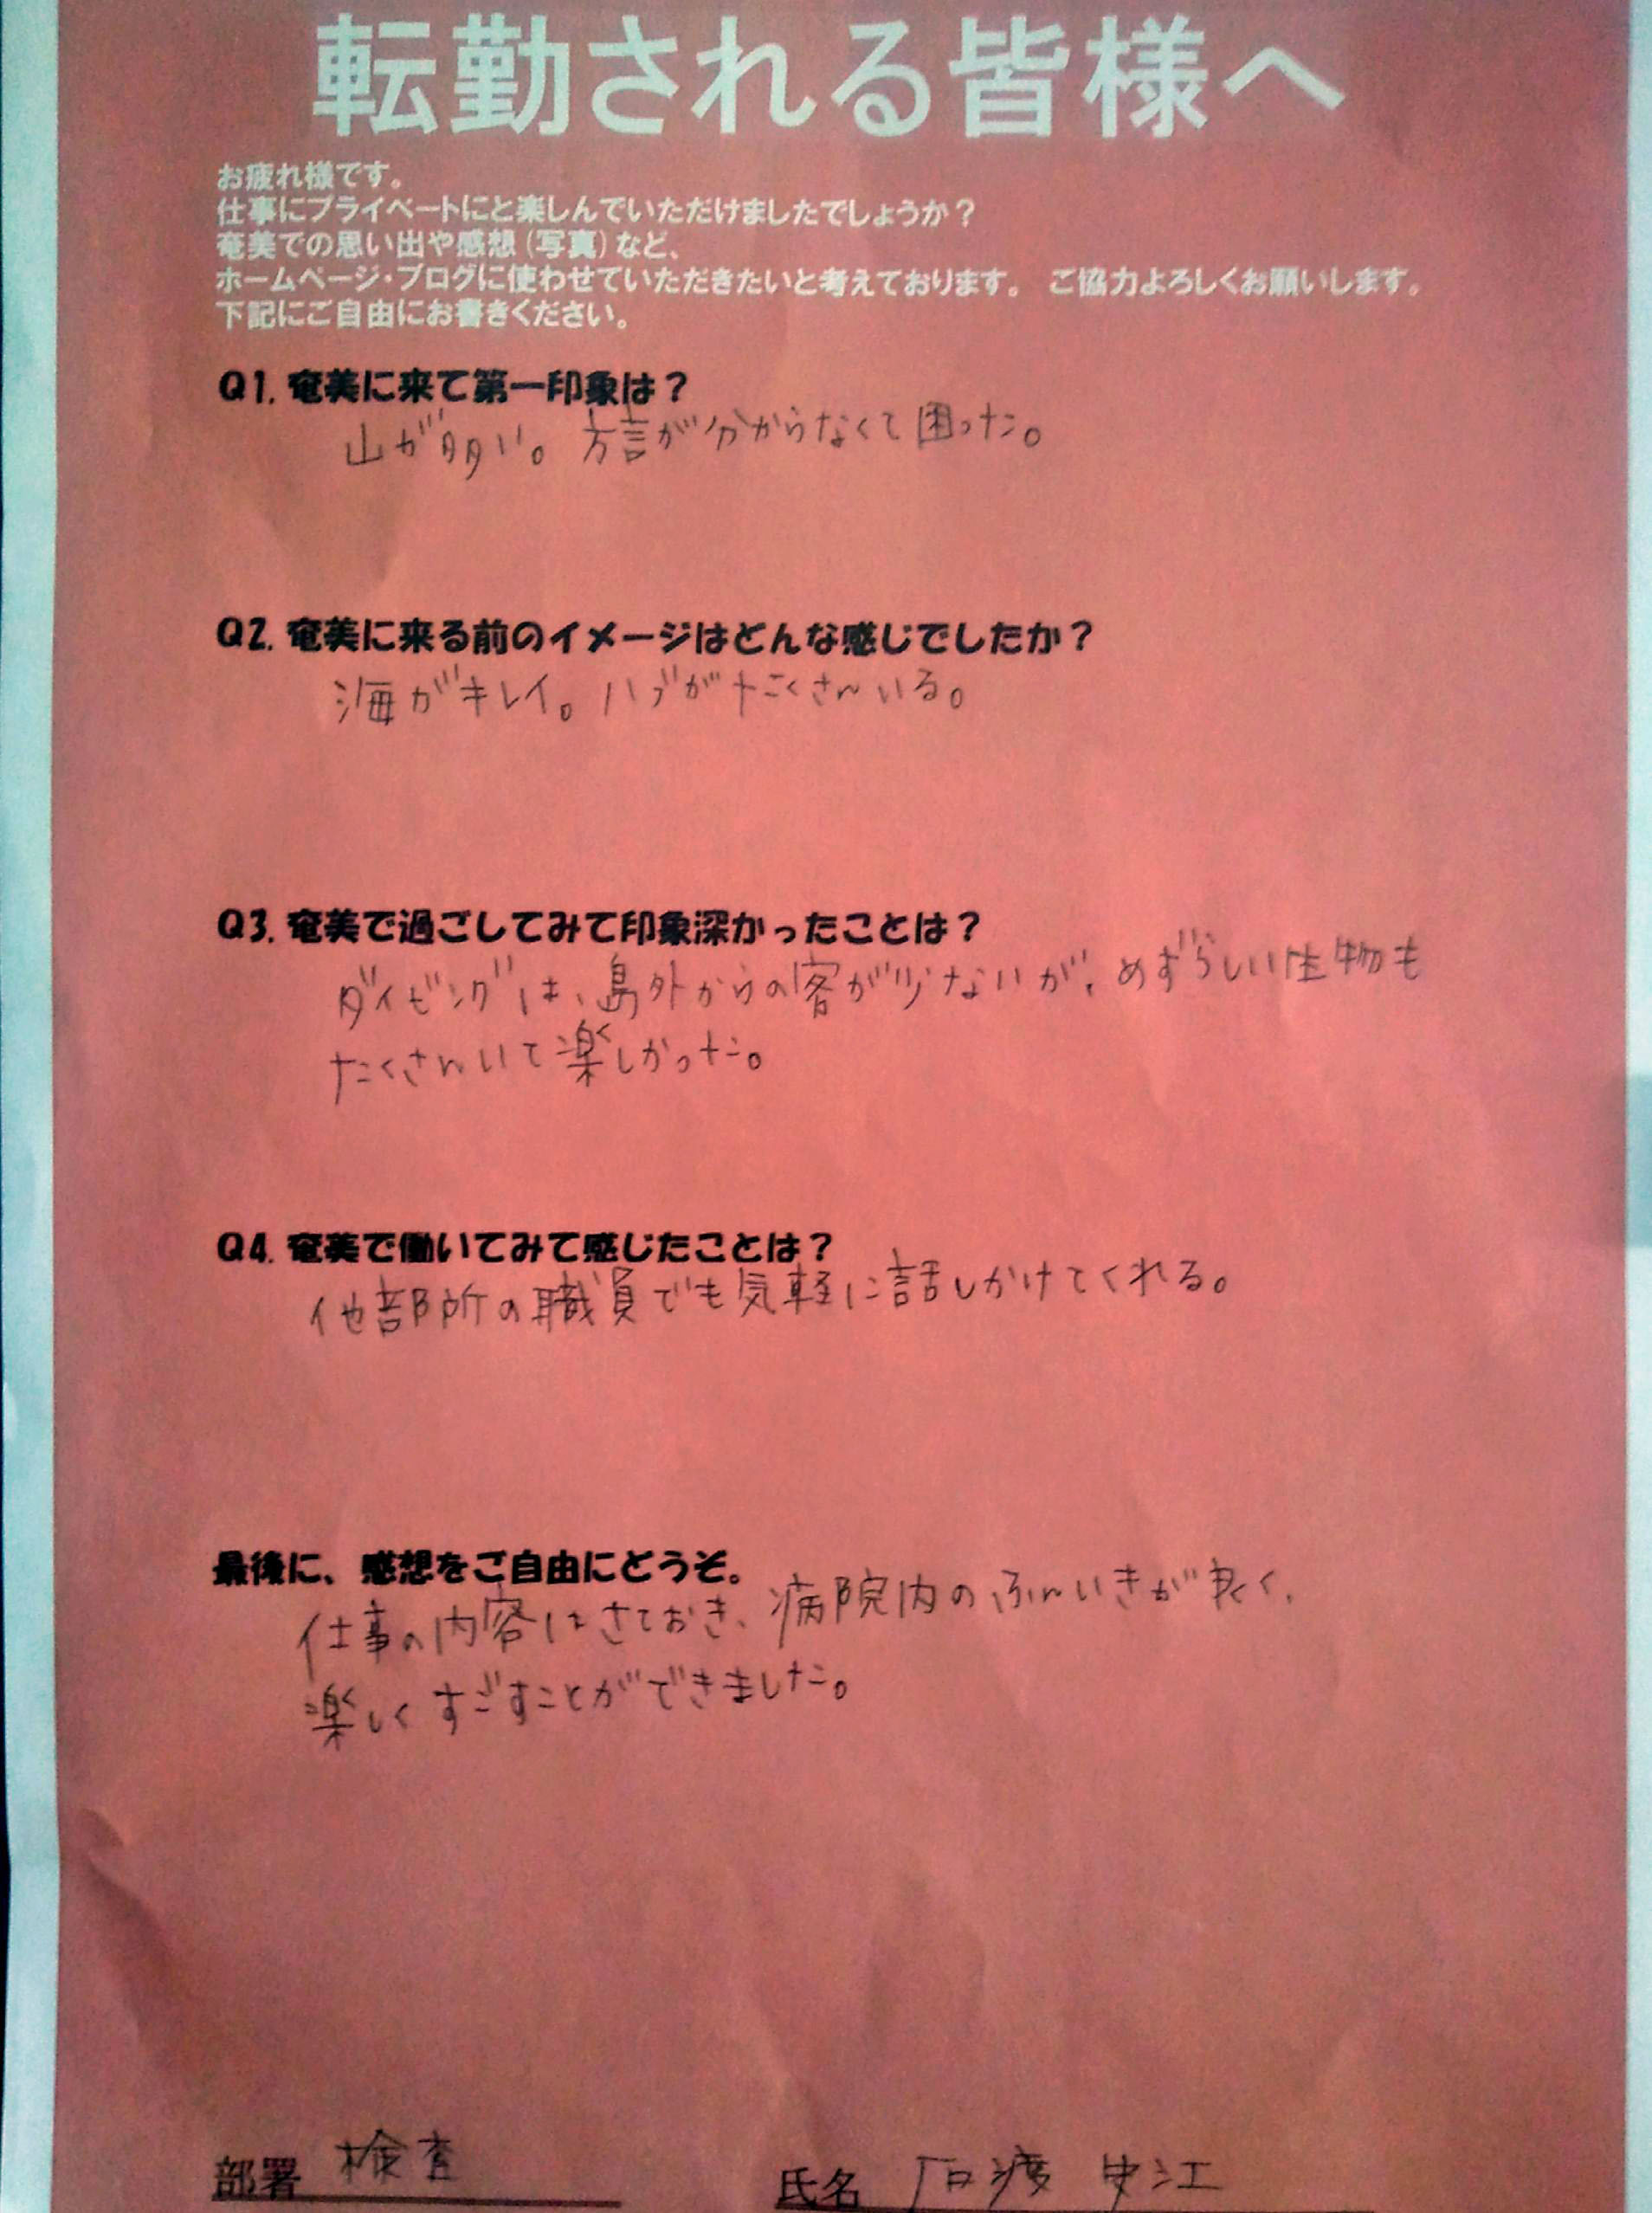 転勤される皆様へ
お疲れ様です。
仕事にプライベートにと楽しんでいただけましたでしょうか？
奄美での思い出や感想(写真)など、
ホームページ・ブログに使わせていただきたいと考えております。 ご協力よろしくお願いします。
下記にご自由にお書きください。
Q1. 奄美に来て第一印象は？
山が多い。方言が分からなくて困った。
Q2. 奄美に来る前のイメージはどんな感じでしたか？
海がキレイ。ハブがたくさんいる。
Q3. 奄美で過ごしてみて印象深かったことは？
ダイビングは、島外からの客が少ないが、めずらしい生物も
たくさんいて楽しかった。
Q4. 奄美で働いてみて感じたことは？
他部所の職員でも気軽に話しかけてくれる。
最後に、感想をご自由にどうぞ。
仕事の内容はさておき、病院内のふんいきが良く、
楽しくすごすことができました。
部署 検査
氏名 石渡 史江